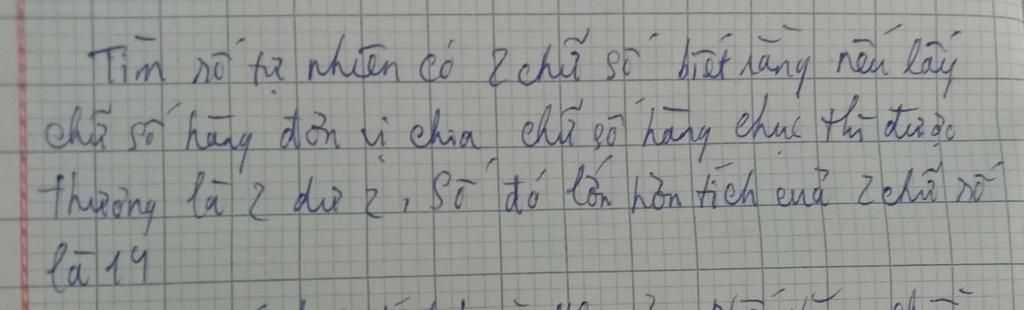 Tìm số tự nhiên có 2 chữ số biết rằng nếu lấy
chữ số hàng đơn vị chia chữ số hàng chục thì được
thương là 2 dư 2, Số đó lớn hơn tích của 2 chữ số
là 14